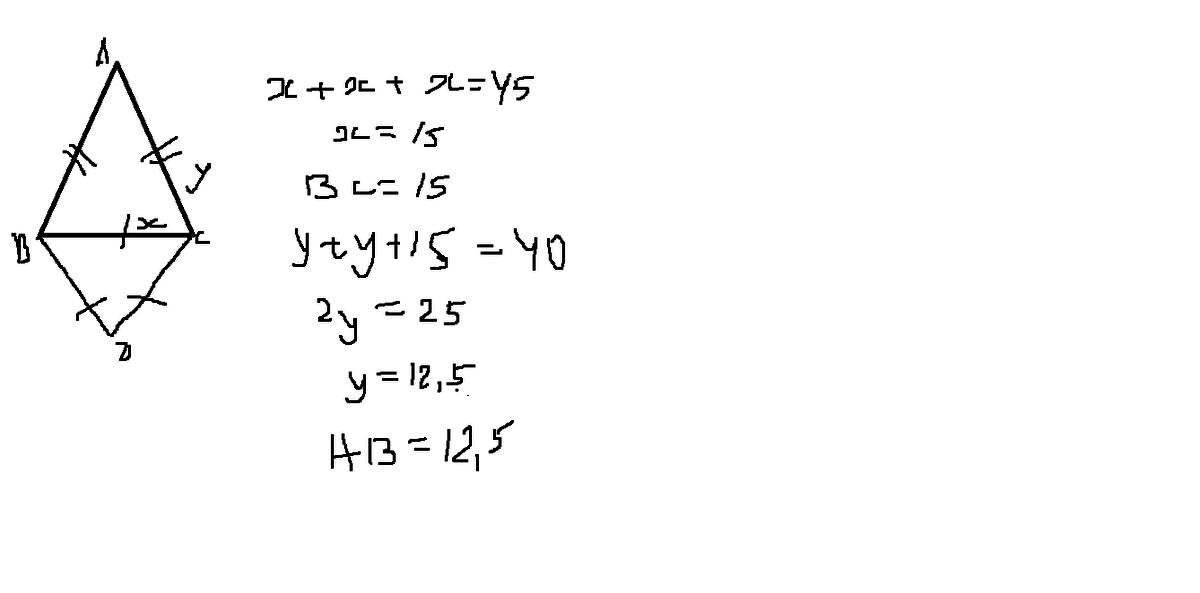 A
y
x
B
C
D
x + x + x = 45
x = 15
BC = 15
y + y + 15 = 40
2y = 25
y = 12,5
AB = 12,5